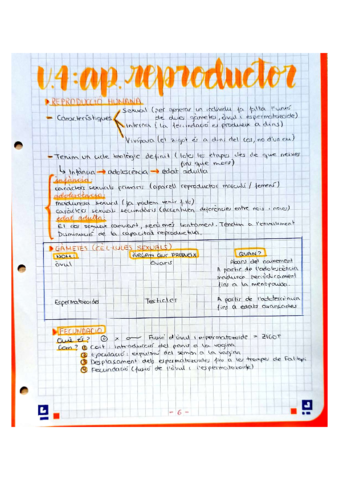 U.4: ap. reproductor
REPRODUCCIÓ HUMANA
- Característiques
Sexual (per generar un individu fa falta l'unió
de dues gàmetes, òvul i espermatozoide)
Interna (la fecundació es produeix a dins)
Vivípara (el zigot és a dins del cos, no d'un ou)
- Tenim un cicle biològic definit (totes les etapes des de que neixes
fins que mors)
↳ Infància → adolescència → edat adulta
Infància
caràcters sexuals primaris (aparell reproductor masculí / femení)
adolescència
maduresa sexual (ja poden tenir fills)
caràcters sexuals secundaris (accentuen diferències entre nois i noies)
edat adulta
El cos segueix canviant, però més lentament. Tendim a l'envelliment
Disminució de la capacitat reproductiva.
GAMETES (CÈL·LULES SEXUALS)
NOM
ÒRGAN QUE PRODUEIX
QUAN?
Òvul
Ovaris
Abans del naixement
A partir de l'adolescència
maduren periòdicament
fins a la menopausa.
Espermatozoides
Testicles
A partir de l'adolescència
fins a edats avançades
FECUNDACIÓ
Què és? Fusió d'òvul i espermatozoide = ZIGOT
Com? ① Coit: introducció del penis a la vagina
② Ejaculació: expulsió del semen a la vagina
③ Desplaçament dels espermatozoides fins a les trompes de Fal·lopi
④ Fecundació (fusió de l'òvul i l'espermatozoide)
- 6 -